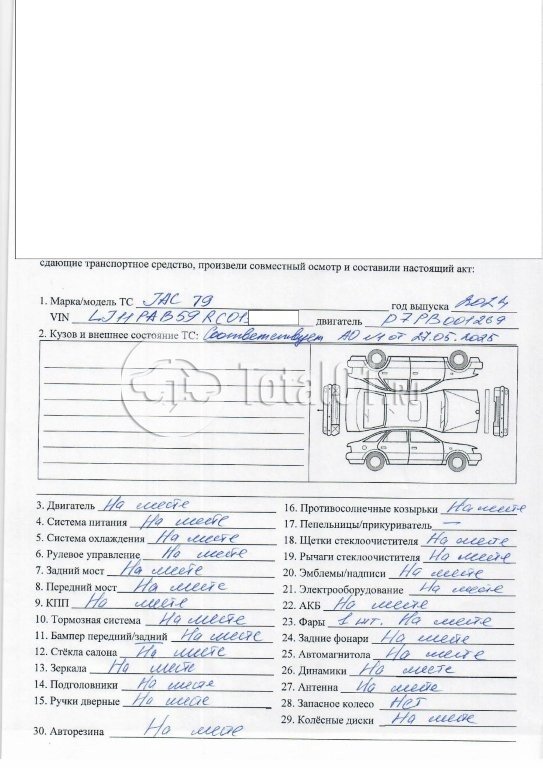 сдающие транспортное средство, произвели совместный осмотр и составили настоящий акт:
1. Марка/модель ТС JAC T9 год выпуска 2024
VIN LJ11PAB59RC01 двигатель D7PB001269
2. Кузов и внешнее состояние ТС: Соответствует АО №1 от 27.05.2025
TotalCT.RU
3. Двигатель На месте
4. Система питания На месте
5. Система охлаждения На месте
6. Рулевое управление На месте
7. Задний мост На месте
8. Передний мост На месте
9. КПП На месте
10. Тормозная система На месте
11. Бампер передний/задний На месте
12. Стёкла салона На месте
13. Зеркала На месте
14. Подголовники На месте
15. Ручки дверные На месте
16. Противосолнечные козырьки На месте
17. Пепельницы/прикуриватель —
18. Щетки стеклоочистителя На месте
19. Рычаги стеклоочистителя На месте
20. Эмблемы/надписи На месте
21. Электрооборудование На месте
22. АКБ На месте
23. Фары 1 шт. На месте
24. Задние фонари На месте
25. Автомагнитола На месте
26. Динамики На месте
27. Антенна На месте
28. Запасное колесо Нет
29. Колёсные диски На месте
30. Авторезина На месте